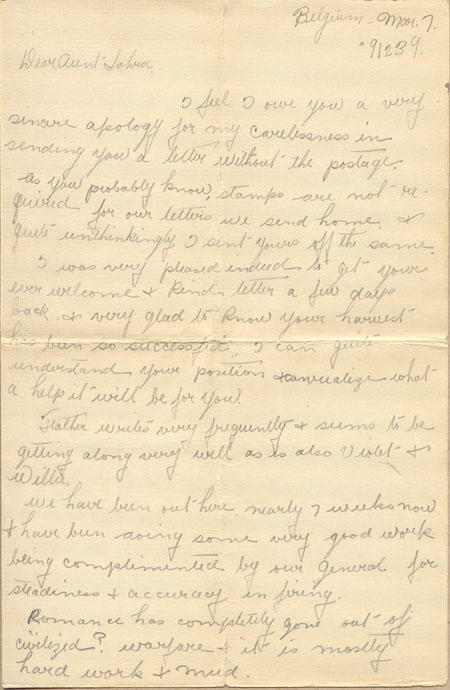 Belgium - Mar. 7.
Dear Aunt
I feel I owe you a very
sincere apology for my carelessness in
sending you a letter without the postage.
As you probably know, stamps are not re-
quired for our letters we send home. &
quite unthinkingly I sent yours off the same.
I was very pleased indeed to get your
ever welcome & kind letter a few days
back. & very glad to know your harvest
has been so successful. I can quite
understand your position what
a help it will be for you.
Father writes very frequently & seems to be
getting along very well as is also Violet &
Willie.
We have been out here nearly 7 weeks now
& have been doing some very good work
being complimented by our General for
steadiness & accuracy in firing.
Romance has completely gone out of
civilized? warfare - it is mostly
hard work & mud.